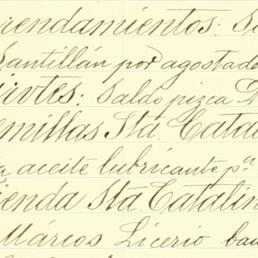 rendamientos: Sa
Santillán por agostade
irvtes: Saldo pizca
emillas Sta Catal
a aceite lubricante pª
ienda Sta Catalin
Márcos Licerio